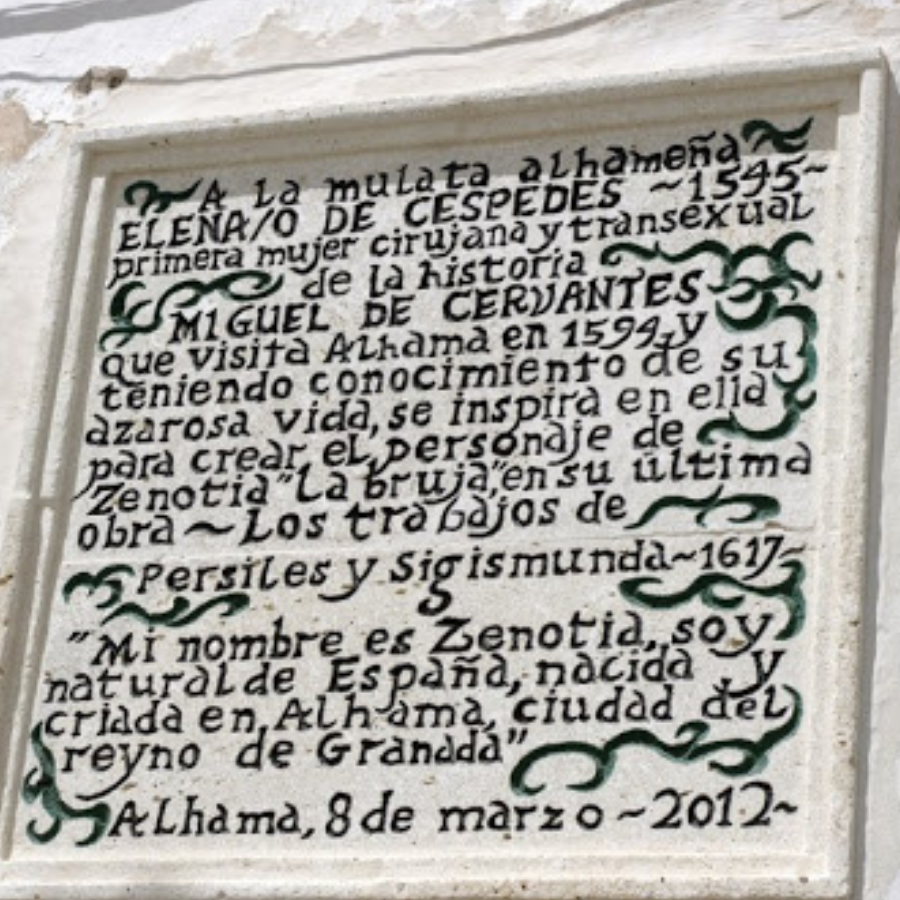 A la mulata alhameña
ELENA/O DE CESPEDES ~1545~
primera mujer cirujana y transexual
de la historia
MIGUEL DE CERVANTES
que visita Alhama en 1594, y
teniendo conocimiento de su
azarosa vida, se inspira en ella
para crear el personaje de
Zenotia "La bruja", en su última
obra ~ Los trabajos de
Persiles y Sigismunda ~1617~
"Mi nombre es Zenotia, soy
natural de España, nacida y
criada en Alhama, ciudad del
reyno de Granada"
Alhama, 8 de marzo ~2012~